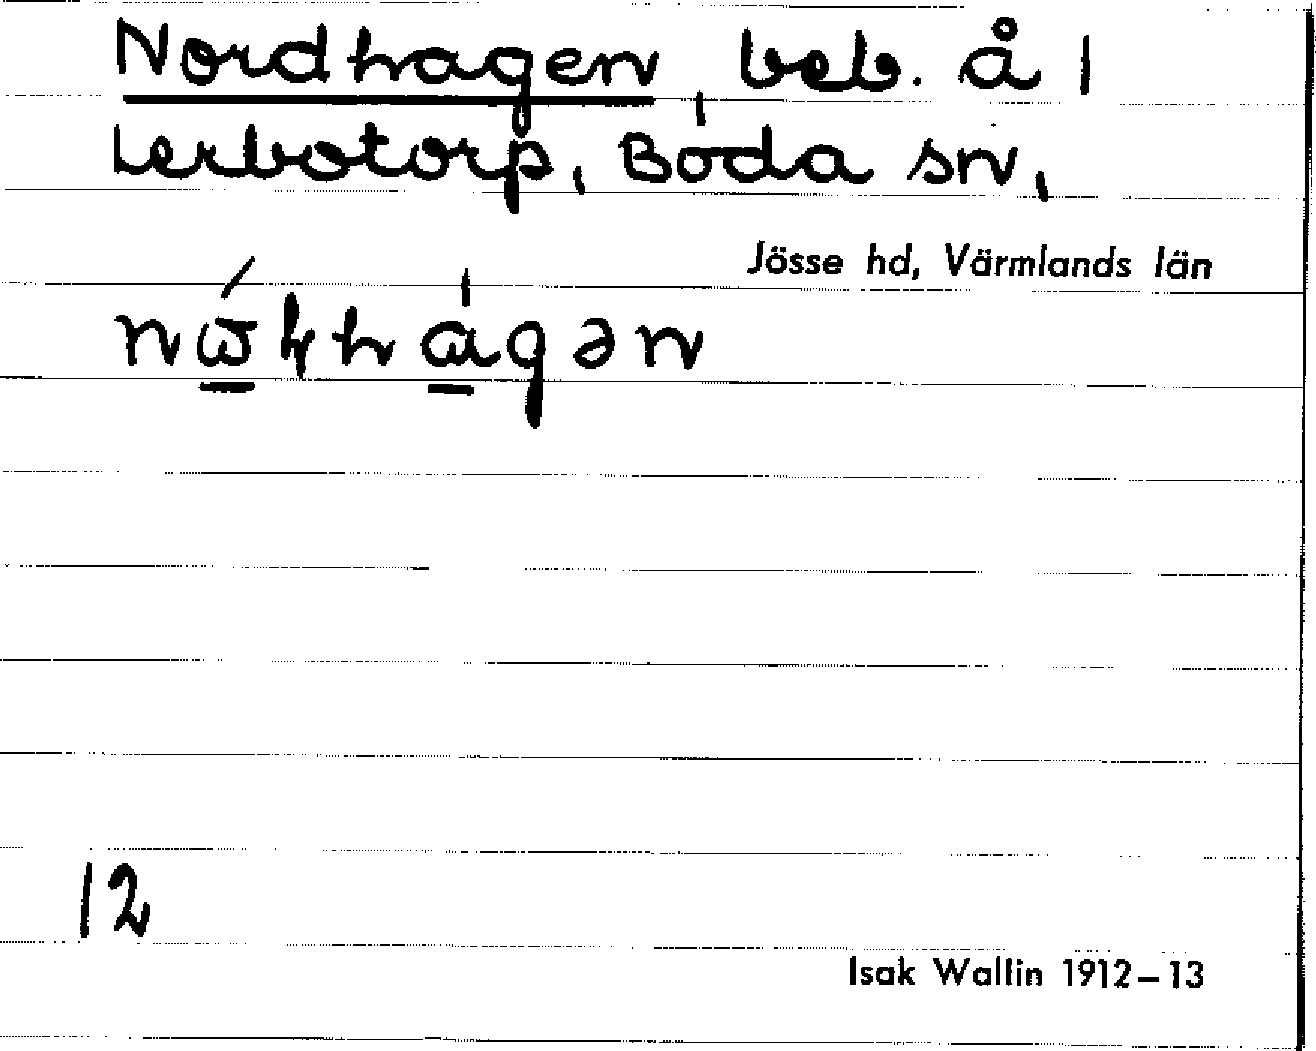 Nordhagen, beb. å 1
Lerbotorp, Boda sn,
Jösse hd, Värmlands län
12
Isak Wallin 1912–13